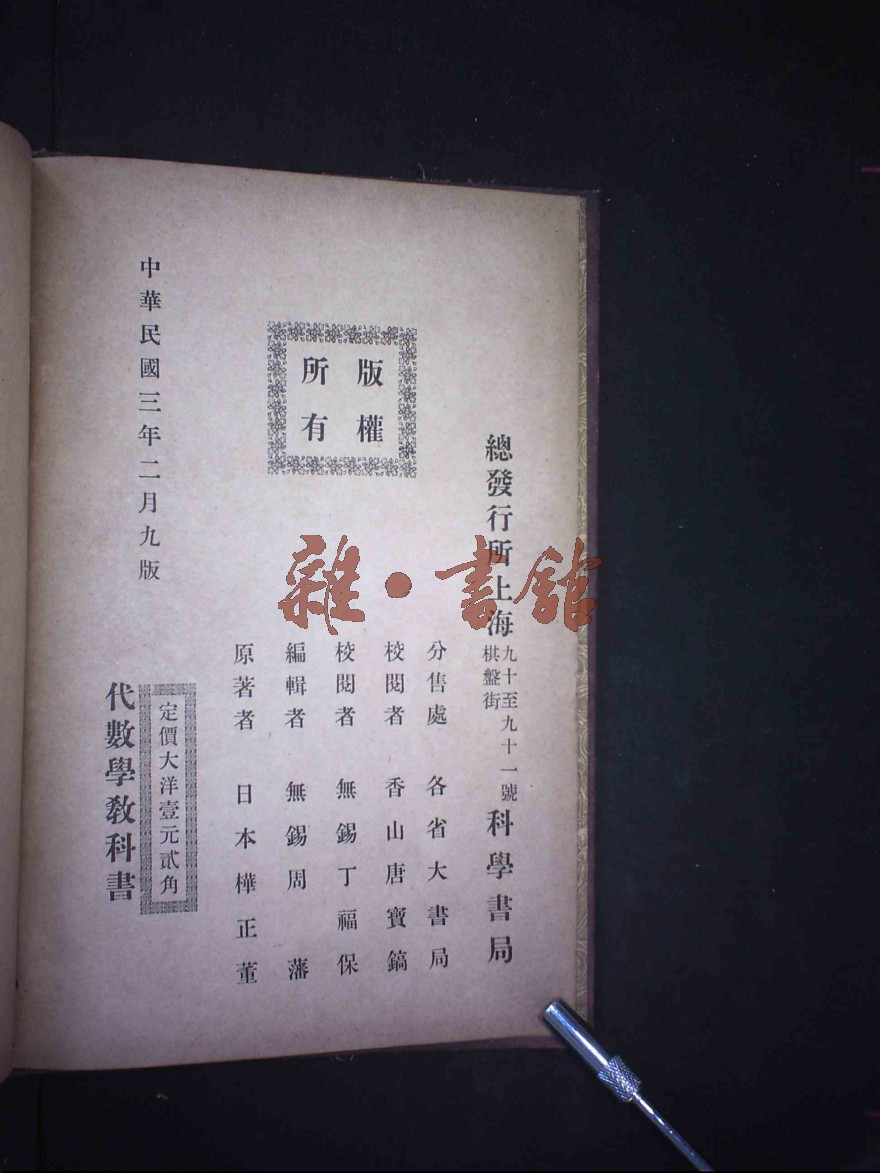 總發行所上海九十至九十一號棋盤街科學書局
分售處 各省大書局
校閱者 香山唐寶鎬
校閱者 無錫丁福保
編輯者 無錫周藩
原著者 日本樺正董
版權
所有
定價大洋壹元貳角
中華民國三年二月九版
代數學教科書
雜·書館